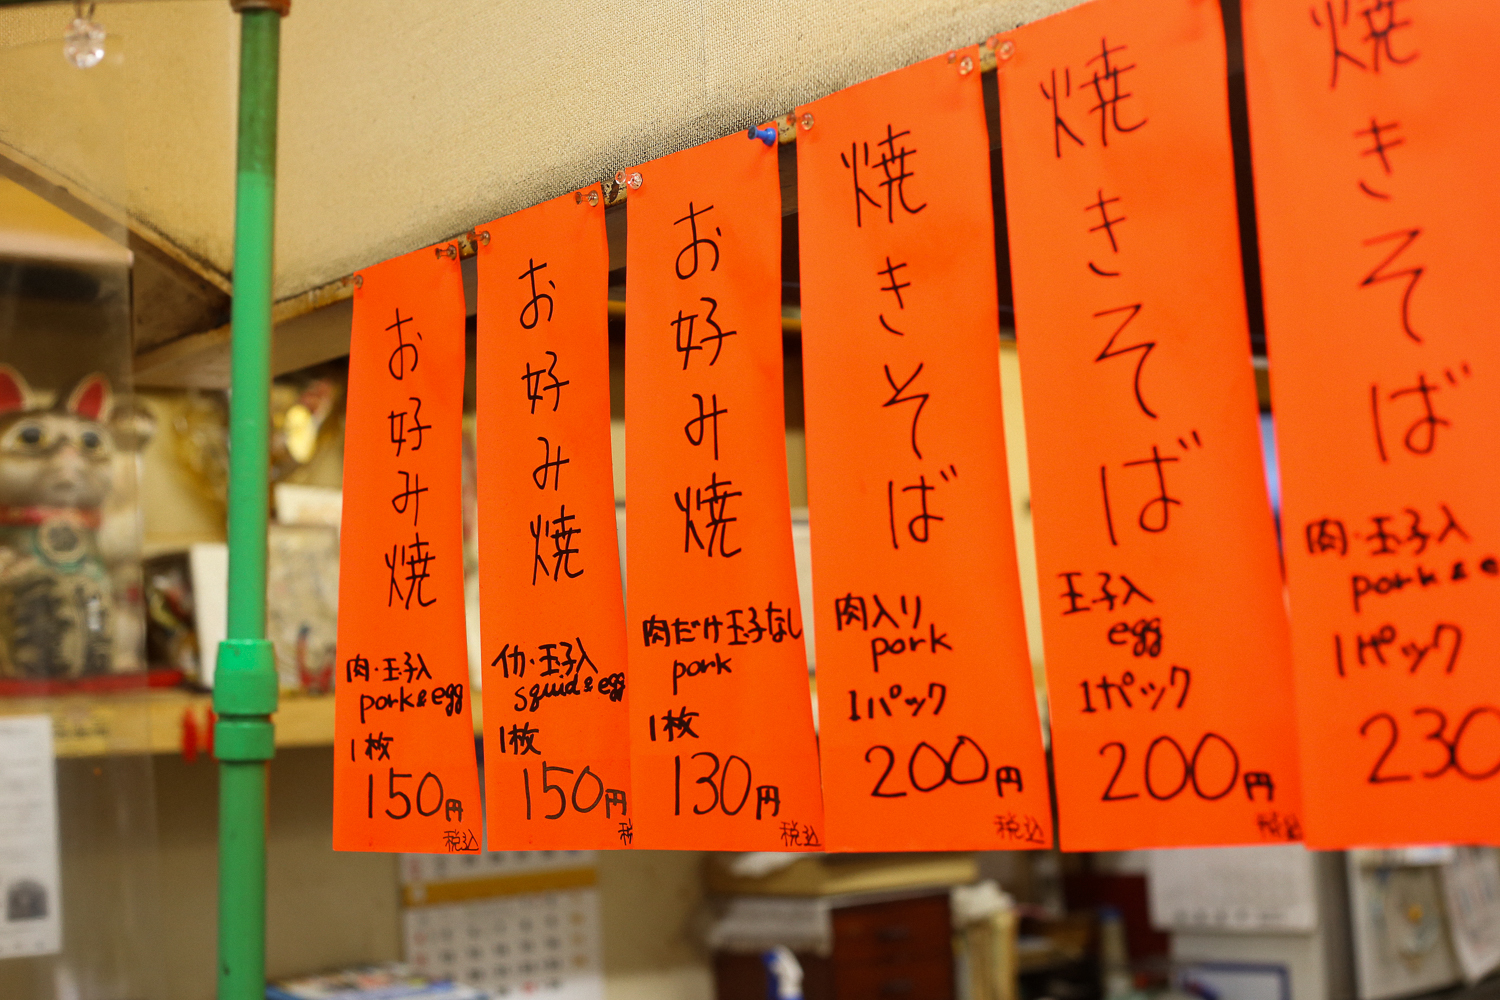 お好み焼
肉・玉子入
pork & egg
1枚
150円
税込
お好み焼
イカ・玉子入
squid & egg
1枚
150円
税
お好み焼
肉だけ玉子なし
pork
1枚
130円
税込
焼きそば
肉入り
pork
1パック
200円
税込
焼きそば
玉子入
egg
1パック
200円
税込
焼きそば
肉・玉子入
pork & e
1パック
230